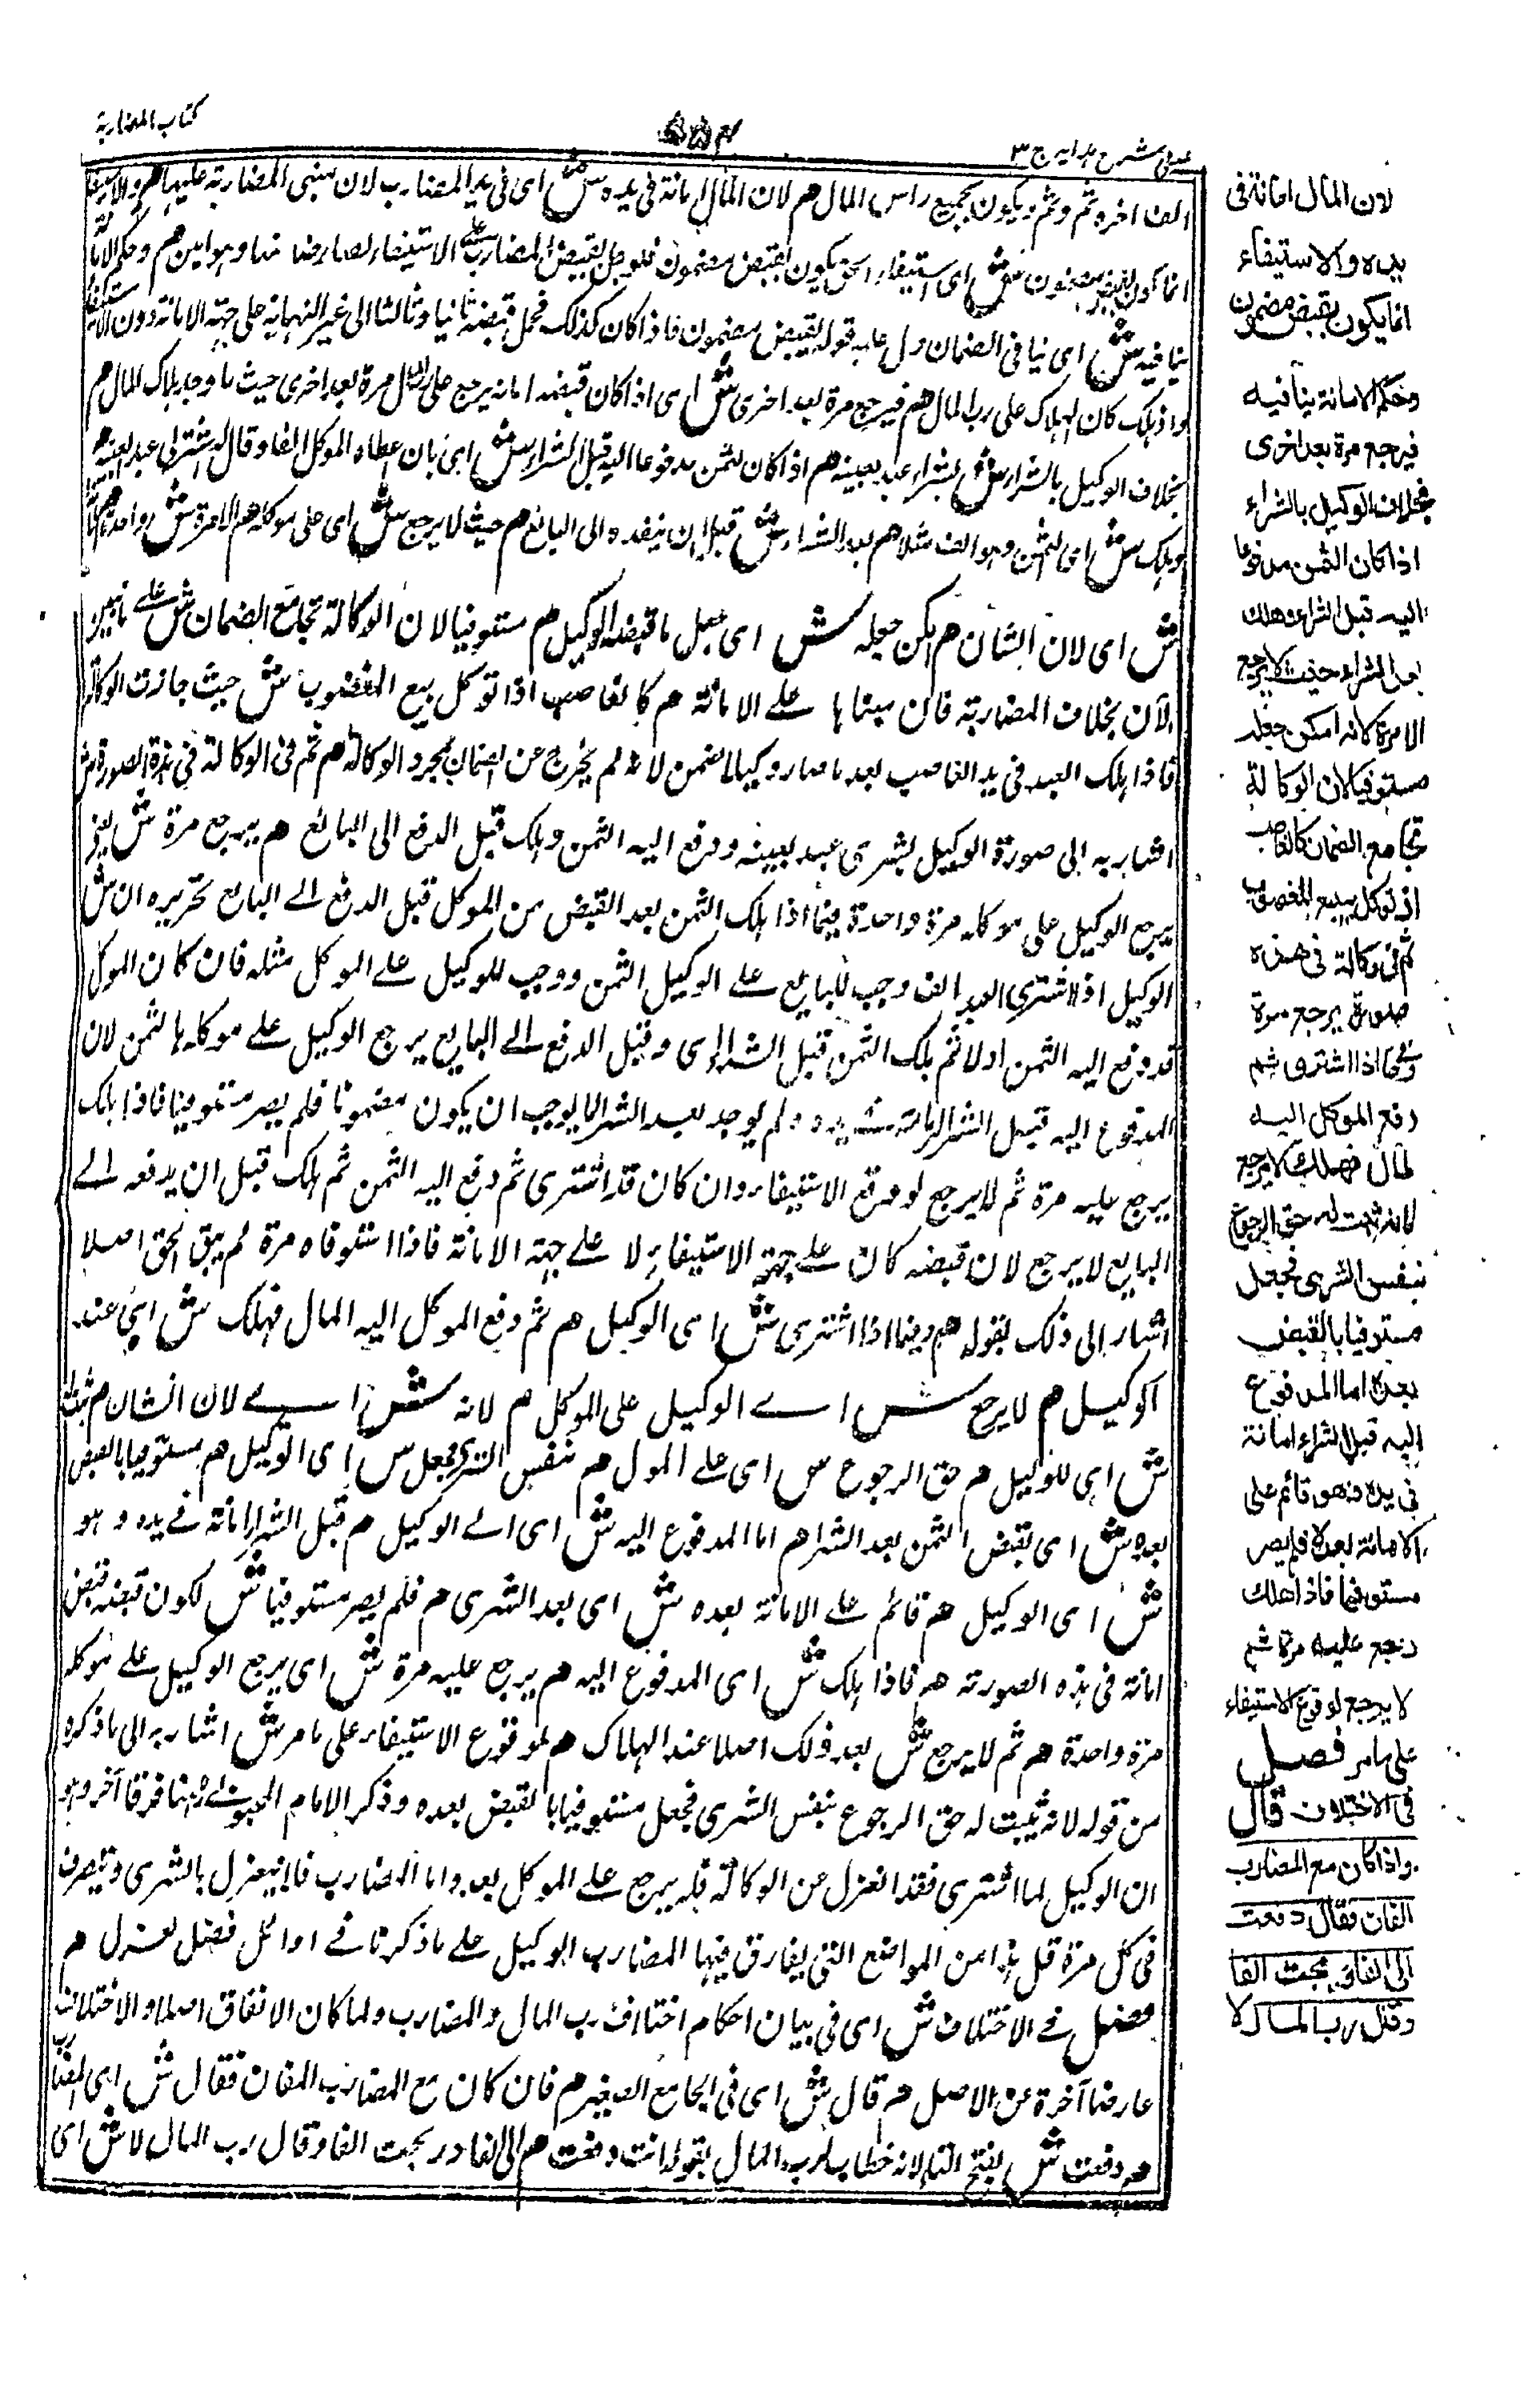 كتاب المضاربة
عينى شرح هدايه ج ٣
الف اخره ثم وثم ويكون جميع راس المال هم لان المال امانة فى يده ش اى فى يد المضارب لان مبنى المضاربة عليها هم والاستيفاء
انما يكون بقبض مضمون ش اى استيفاء الحق يكون بقبض مضمون فلو حمل قبض المضارب على الاستيفاء لصار ضامنا وهو امين هم وحكم الامانة
ينافيه ش اى ينافى الضمان دل عليه قوله بقبض مضمون فاذا كان كذلك فحمل قبضه ثانيا وثالثا الى غير النهاية على جهة الامانة دون الاستيفاء
واذا هلك كان الهلاك على رب المال هم فيرجع مرة بعد اخرى ش اى اذا كان قبضه امانة يرجع على رب المال مرة بعد اخرى حيث ما وجد هلاك المال هم
بخلاف الوكيل بالشراء ش بشراء عبد بعينه هم اذا كان الثمن مدفوعا اليه قبل الشراء ش اى بان اعطاه الموكل الفا وقال له اشتر لى عبد بعينه هم
وهلك ش اى الثمن وهو الف مثلا هم بعد الشراء ش قبل ان ينقده الى البائع هم حيث لا يرجع ش اى على موكله هم الا مرة ش واحدة هم لانه
ش اى لان الشان هم امكن جعله ش اى جعل ما قبضه الوكيل هم مستوفيا لان الوكالة تجامع الضمان ش على ما نبين
الآن بخلاف المضاربة فان مبناها على الامانة هم كالغاصب اذا توكل ببيع المغضوب ش حيث جازت الوكالة
فاذا هلك العبد فى يد الغاصب بعد ما صار وكيلا يضمن لانه لم يخرج عن الضمان بمجرد الوكالة هم ثم فى الوكالة فى هذه الصورة ش
اشار به الى صورة الوكيل بشرى عبد بعينه ودفع اليه الثمن وهلك قبل الدفع الى البائع هم يرجع مرة ش يعنى
يرجع الوكيل على موكله مرة واحدة فيما اذا هلك الثمن بعد القبض من الموكل قبل الدفع الى البايع تحريره ان ش
الوكيل اذا اشترى العبد الف وجب للبايع على الوكيل الثمن ووجب للوكيل على الموكل مثله فان كان الموكل
قد دفع اليه الثمن اولا ثم هلك الثمن قبل الشراء اى وقبل الدفع الى البايع يرجع الوكيل على موكله بالثمن لان
المدفوع اليه قبل الشراء امانة فى يده ولم يوجد بعد الشراء ما يوجب ان يكون مضمونا فلم يصر مستوفيا فاذا هلك
يرجع عليه مرة ثم لا يرجع لوقوع الاستيفاء وان كان قد اشترى ثم دفع اليه الثمن ثم هلك قبل ان يدفعه الى
البايع لا يرجع لان قبضه كان على جهة الاستيفاء لا على جهة الامانة فاذا استوفاه مرة لم يبق الحق اصلا
اشار الى ذلك بقوله هم وفيما اذا اشترى ش اى الوكيل هم ثم دفع الموكل اليه المال فهلك ش اى عند
الوكيل هم لا يرجع ش اے الوكيل على الموكل هم لانه ش اے لان الشان هم ثبت له
ش اى للوكيل هم حق الرجوع ش اى على الموكل هم بنفس الشرى فجعل ش اى الوكيل هم مستوفيا بالقبض
بعده ش اى بقبض الثمن بعد الشراء هم اما المدفوع اليه ش اى الى الوكيل هم قبل الشراء امانة فى يده وهو
ش اى الوكيل هم قائم على الامانة بعده ش اى بعد الشرى هم فلم يصر مستوفيا ش لكون قبضه قبض
امانة فى هذه الصورة هم فاذا هلك ش اى المدفوع اليه هم يرجع عليه مرة ش اى يرجع الوكيل على موكله
مرة واحدة هم ثم لا يرجع ش بعد ذلك اصلا عند الهلاك هم لوقوع الاستيفاء على ما مر ش اشار به الى ما ذكره
من قوله لانه ثبت له حق الرجوع بنفس الشرى فجعل مستوفيا بالقبض بعده وذكر الامام المحبوبى ههنا فرقا آخر وهو
ان الوكيل لما اشترى فقد انعزل عن الوكالة فلا يرجع على الموكل بعد واما المضارب فلا ينعزل بالشرى ويتصرف
فى كل مرة قل هذا من المواضع التى يفارق فيها المضارب الوكيل على ما ذكرنا فى اوائل فصل لعزل هم
فصل فى الاختلاف ش اى فى بيان احكام اختلاف رب المال والمضارب ولما كان الاتفاق اصلا والاختلاف
عارضا آخره عن الاصل هم قال ش اى فى الجامع الصغير هم فان كان مع المضارب الفان فقال ش اى المضارب
هم دفعت ش بفتح التاء لانه خطاب لرب المال بقوله انت دفعت هم الى الفا وربحت الفا وقال رب المال لا ش اى
لان المال امانة فى
يده والاستيفاء
انما يكون بقبض مضمون
وحكم الامانة ينافيه
فيرجع مرة بعد اخرى
بخلاف الوكيل بالشراء
اذا كان الثمن مدفوعا
اليه قبل الشراء وهلك
بعد الشراء حيث لا يرجع
الا مرة لانه امكن جعله
مستوفيا لان الوكالة
تجامع الضمان كالغاصب
اذا توكل ببيع المغصوب
ثم فى وكالة فى هذه
صورة يرجع مرة
وفيما اذا اشترى ثم
دفع الموكل اليه
لمال فهلك لا يرجع
لانه ثبت له حق الرجوع
بنفس الشرى فجعل
مستوفيا بالقبض
بعده اما المدفوع
اليه قبل الشراء امانة
فى يده وهو قائم على
الامانة بعده فلم يصر
مستوفيا فاذا هلك
رجع عليه مرة ثم
لا يرجع لوقوع الاستيفاء
على ما مر فصل
فى الاختلاف قال
واذا كان مع المضارب
الفان فقال دفعت
الى الفا وربحت الفا
وقال رب المال لا